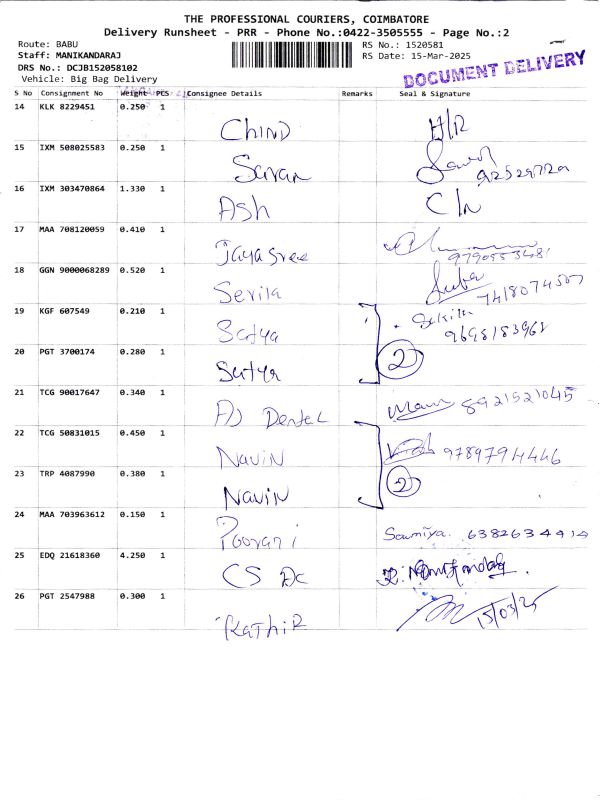 THE PROFESSIONAL COURIERS, COIMBATORE
Delivery Runsheet - PRR - Phone No.:0422-3505555 - Page No.:2
Route: BABU
Staff: MANIKANDARAJ
DRS No.: DCJB152058102
Vehicle: Big Bag Delivery
RS No.: 1520581
RS Date: 15-Mar-2025
DOCUMENT DELIVERY
S No Consignment No Weight PCS Consignee Details Remarks Seal & Signature
14 KLK 8229451 0.250 1 Chind H/R
15 IXM 508025583 0.250 1 Saran
16 IXM 303470864 1.330 1 Ash
17 MAA 708120059 0.410 1 Jayasree 9790553481
18 GGN 9000068289 0.520 1 Sevila
19 KGF 607549 0.210 1 Satya
20 PGT 3700174 0.280 1 Satya 2
21 TCG 90017647 0.340 1 AJ Dental 8921521045
22 TCG 50831015 0.450 1 Navin 9789794446
23 TRP 4087990 0.380 1 Navin 2
24 MAA 703963612 0.150 1 Poovani Saumiya. 6382634414
25 EDQ 21618360 4.250 1 CS DC
26 PGT 2547988 0.300 1 Kathir 15/03/25